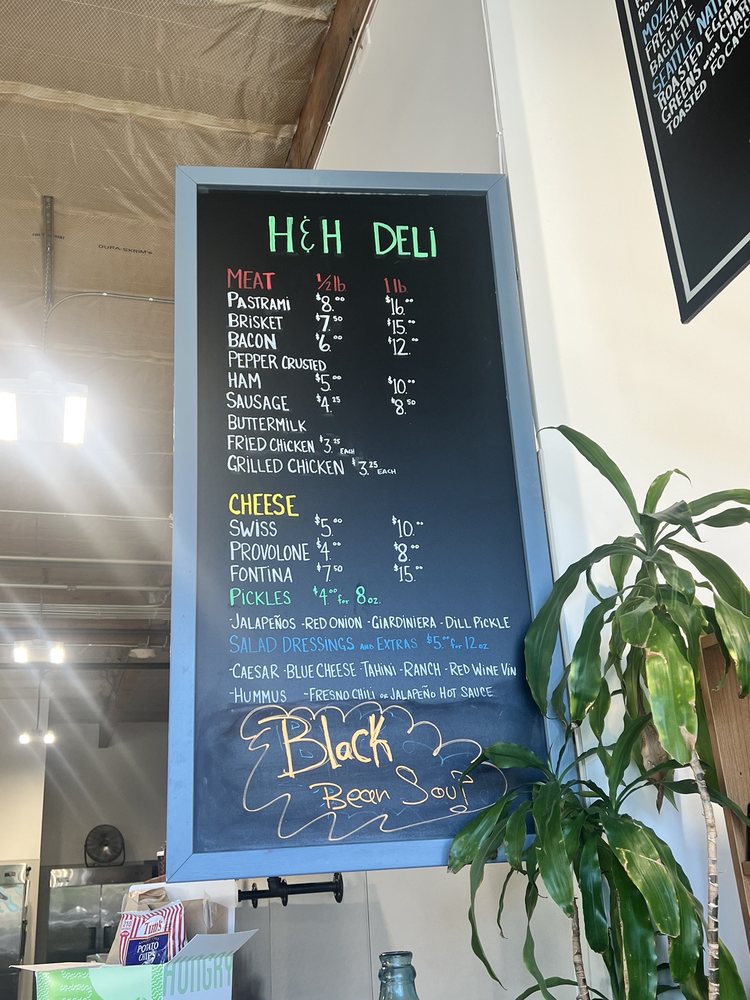 H & H DELI
MEAT ½ lb 1 lb
PASTRAMI $8.00 $16.00
BRISKET $7.50 $15.00
BACON $6.00 $12.00
PEPPER CRUSTED
HAM $5.00 $10.00
SAUSAGE $4.25 $8.50
BUTTERMILK
FRIED CHICKEN $3.25 EACH
GRILLED CHICKEN $3.25 EACH
CHEESE
SWISS $5.00 $10.00
PROVOLONE $4.00 $8.00
FONTINA $7.50 $15.00
PICKLES $4.00 for 8 oz.
·JALAPEÑOS -RED ONION -GIARDINIERA -DILL PICKLE
SALAD DRESSINGS AND EXTRAS $5.00 for 12 oz
-CAESAR -BLUE CHEESE -TAHINI -RANCH -RED WINE VIN
-HUMMUS -FRESNO CHILI or JALAPEÑO HOT SAUCE
Black
Bean Soup
MOZZ
FRESH
BAGUETTE
SEATTLE
ROASTED EGGP
GREENS with CHAR
TOASTED FOCACC
DURA-SKRIM
Tim's
POTATO
CHIPS
HUNGRY